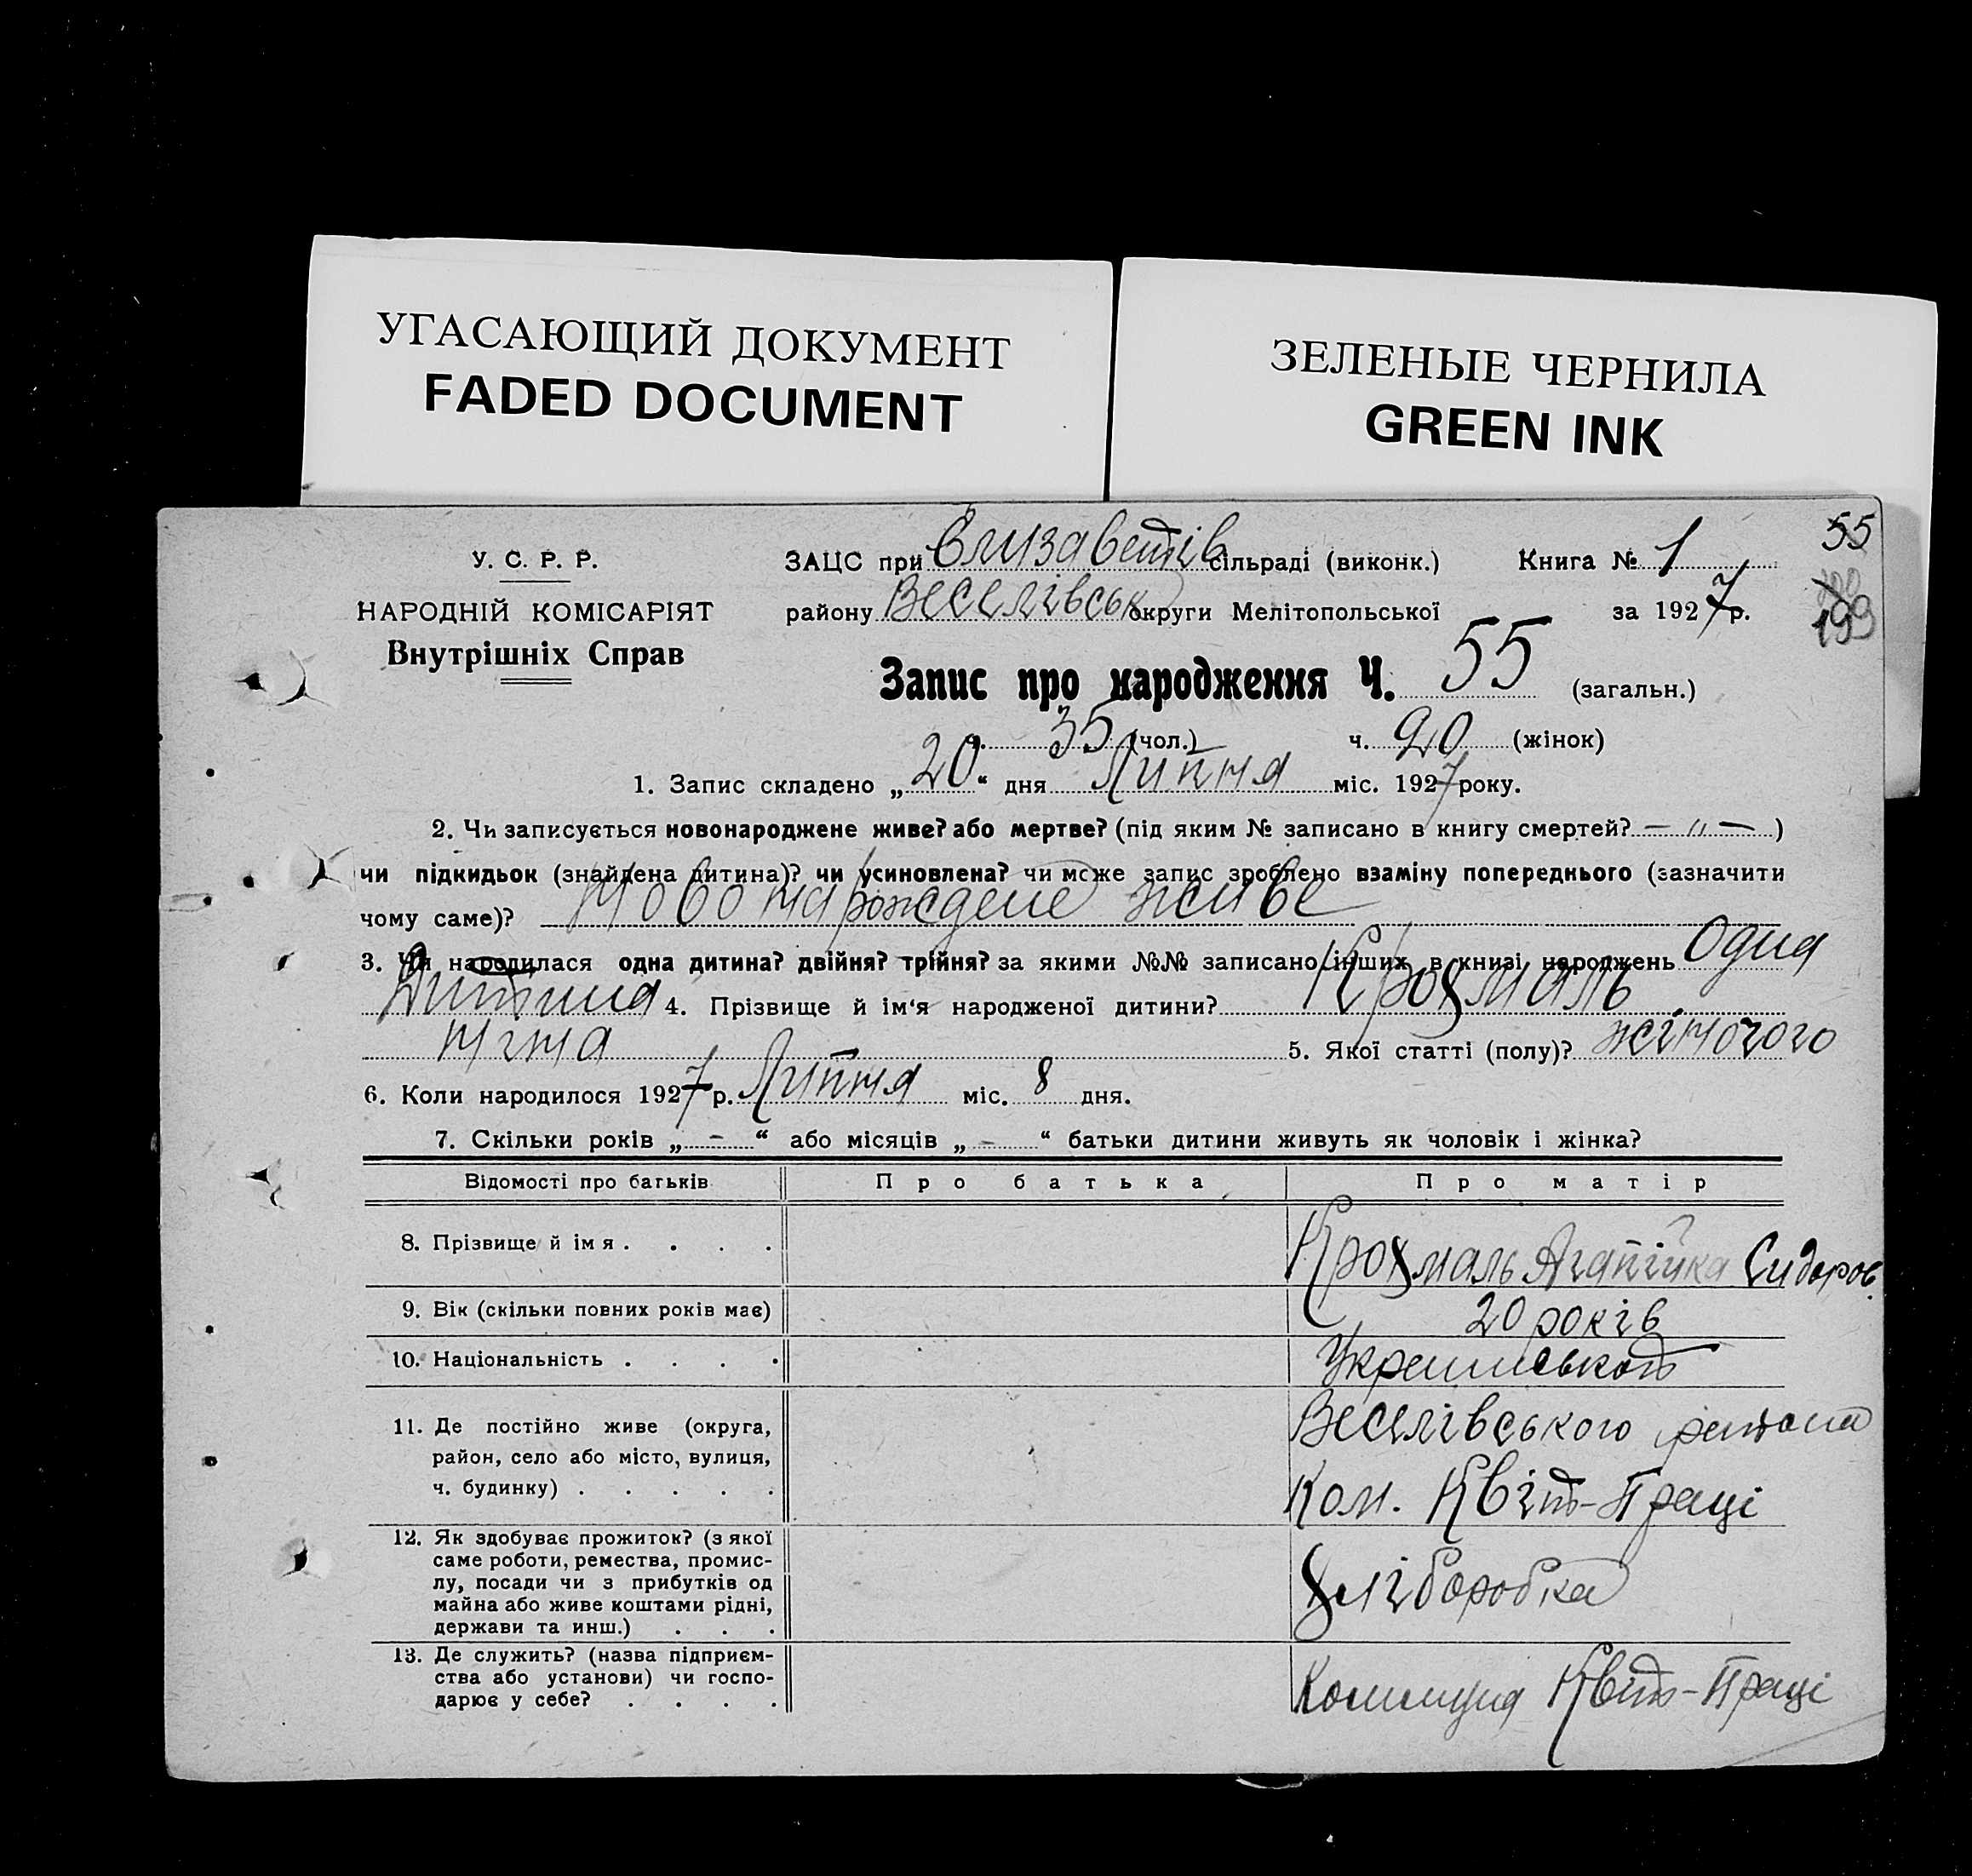 УГАСАЮЩИЙ ДОКУМЕНТ
FADED DOCUMENT
ЗЕЛЕНЫЕ ЧЕРНИЛА
GREEN INK
55
199
У. С. Р. Р.
НАРОДНІЙ КОМІСАРІЯТ
Внутрішніх Справ
ЗАЦС при Єлизаветів сільраді (виконк.) Книга № 1
району Веселівськ округи Мелітопольської за 1927 р.
Запис про народження Ч. 55 (загальн.)
ч. 35 (чол.) ч. 20 (жінок)
1. Запис складено „20“ дня Липня міс. 1927 року.
2. Чи записується новонароджене живе? або мертве? (під яким № записано в книгу смертей? — „ —)
чи підкидьок (знайдена дитина)? чи усиновлена? чи може запис зроблено взаміну попереднього (зазначити
чому саме)? Новонарождене живе
3. Чи народилася одна дитина? двійня? трійня? за якими №№ записано інших в книзі народжень Одна
Дитина 4. Прізвище й ім‘я народженої дитини? Крохмаль
Ніна 5. Якої статті (полу)? жіночого
6. Коли народилося 1927 р. Липня міс. 8 дня.
7. Скільки років „ - “ або місяців „ - “ батьки дитини живуть як чоловік і жінка?
Відомості про батьків Про батька Про матір
8. Прізвище й ім я . . . . Крохмаль Агапійка Сидоров.
9. Вік (скільки повних років має) 20 років
10. Національність . . . .
11. Де постійно живе (округа, Веселівського району
район, село або місто, вулиця,
ч. будинку) . . . . . Ком. Квіт-Праці
12. Як здобуває прожиток? (з якої
саме роботи, ремества, промис-
лу, посади чи з прибутків од
майна або живе коштами рідні, Хліборобка
держави та инш.) . . .
13. Де служить? (назва підприєм-
ства або установи) чи госпо- Коммуна Квіт-Праці
дарює у себе? . . . .